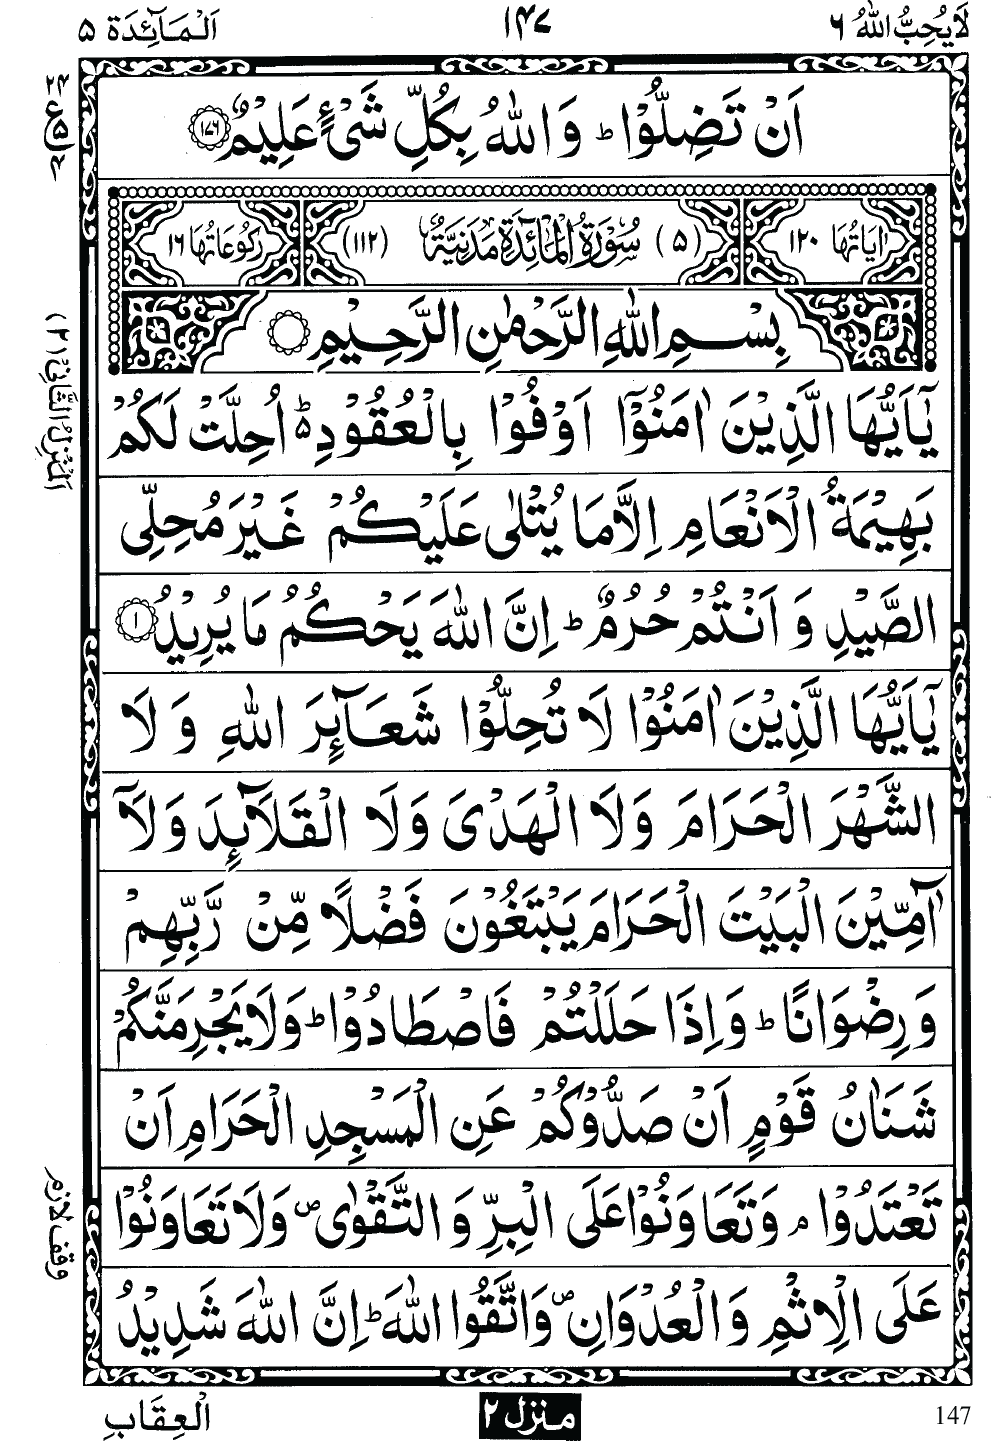 لَا يُحِبُّ اللهُ ٦ ١٤٧ اَلْمَآئِدَة ٥
اَنْ تَضِلُّوْا ؕ وَاللهُ بِكُلِّ شَىْءٍ عَلِيْمٌ ١٧٦
اٰيَاتُهَا ١٢٠ (٥) سُوْرَةُ الْمَآئِدَةِ مَدَنِيَّةٌ (١١٢) رُكُوْعَاتُهَا ١٦
بِسْمِ اللهِ الرَّحْمٰنِ الرَّحِيْمِ
يٰۤاَيُّهَا الَّذِيْنَ اٰمَنُوْۤا اَوْفُوْا بِالْعُقُوْدِ ؕ اُحِلَّتْ لَكُمْ
بَهِيْمَةُ الْاَنْعَامِ اِلَّا مَا يُتْلٰى عَلَيْكُمْ غَيْرَ مُحِلِّى
الصَّيْدِ وَ اَنْتُمْ حُرُمٌ ؕ اِنَّ اللهَ يَحْكُمُ مَا يُرِيْدُ ١
يٰۤاَيُّهَا الَّذِيْنَ اٰمَنُوْا لَا تُحِلُّوْا شَعَآئِرَ اللهِ وَ لَا
الشَّهْرَ الْحَرَامَ وَلَا الْهَدْىَ وَلَا الْقَلَآئِدَ وَلَاۤ
اٰۤمِّيْنَ الْبَيْتَ الْحَرَامَ يَبْتَغُوْنَ فَضْلًا مِّنْ رَّبِّهِمْ
وَ رِضْوَانًا ؕ وَ اِذَا حَلَلْتُمْ فَاصْطَادُوْا ؕ وَلَا يَجْرِمَنَّكُمْ
شَنَاٰنُ قَوْمٍ اَنْ صَدُّوْكُمْ عَنِ الْمَسْجِدِ الْحَرَامِ اَنْ
تَعْتَدُوْا ۘ وَتَعَاوَنُوْا عَلَى الْبِرِّ وَ التَّقْوٰى ۪ وَلَا تَعَاوَنُوْا
عَلَى الْاِثْمِ وَ الْعُدْوَانِ ۪ وَاتَّقُوا اللهَ ؕ اِنَّ اللهَ شَدِيْدُ
الْعِقَابِ
منزل ٢
147
ع
اَلْمَنْزِلُ الثَّانِىْ (٢)
وقف لازم